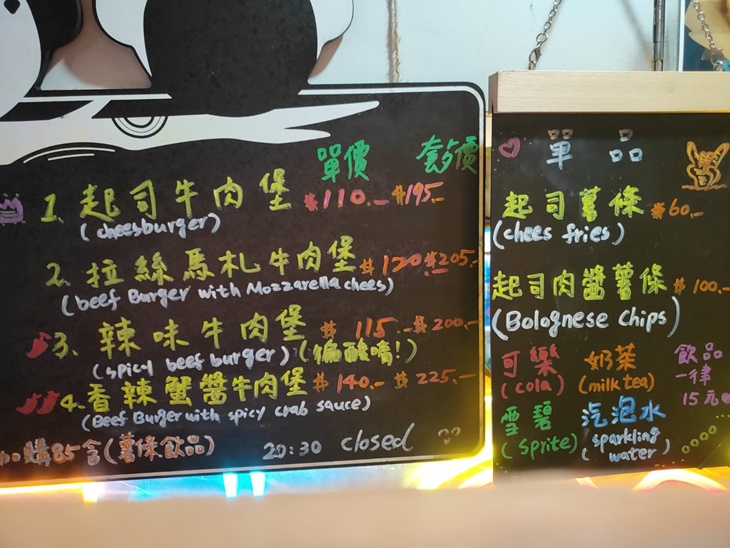 單價 套餐價
1. 起司牛肉堡 $110.- $195.-
(cheesburger)
2. 拉絲馬札牛肉堡 $120 $205.-
(beef Burger with Mozzarella chees)
3. 辣味牛肉堡 $115.- $200.-
(spicy beef burger) (偏酸嗎!)
4. 香辣蟹醬牛肉堡 $140.- $225.-
(Beef Burger with spicy crab sauce)
加購85含(薯條飲品) 20:30 closed
單品
起司薯條 $60.-
(chees fries)
起司肉醬薯條 $100.-
(Bolognese chips)
可樂 奶茶 飲品
(cola) (milk tea) 一律
雪碧 汽泡水 15元
(Sprite) (sparkling
water)